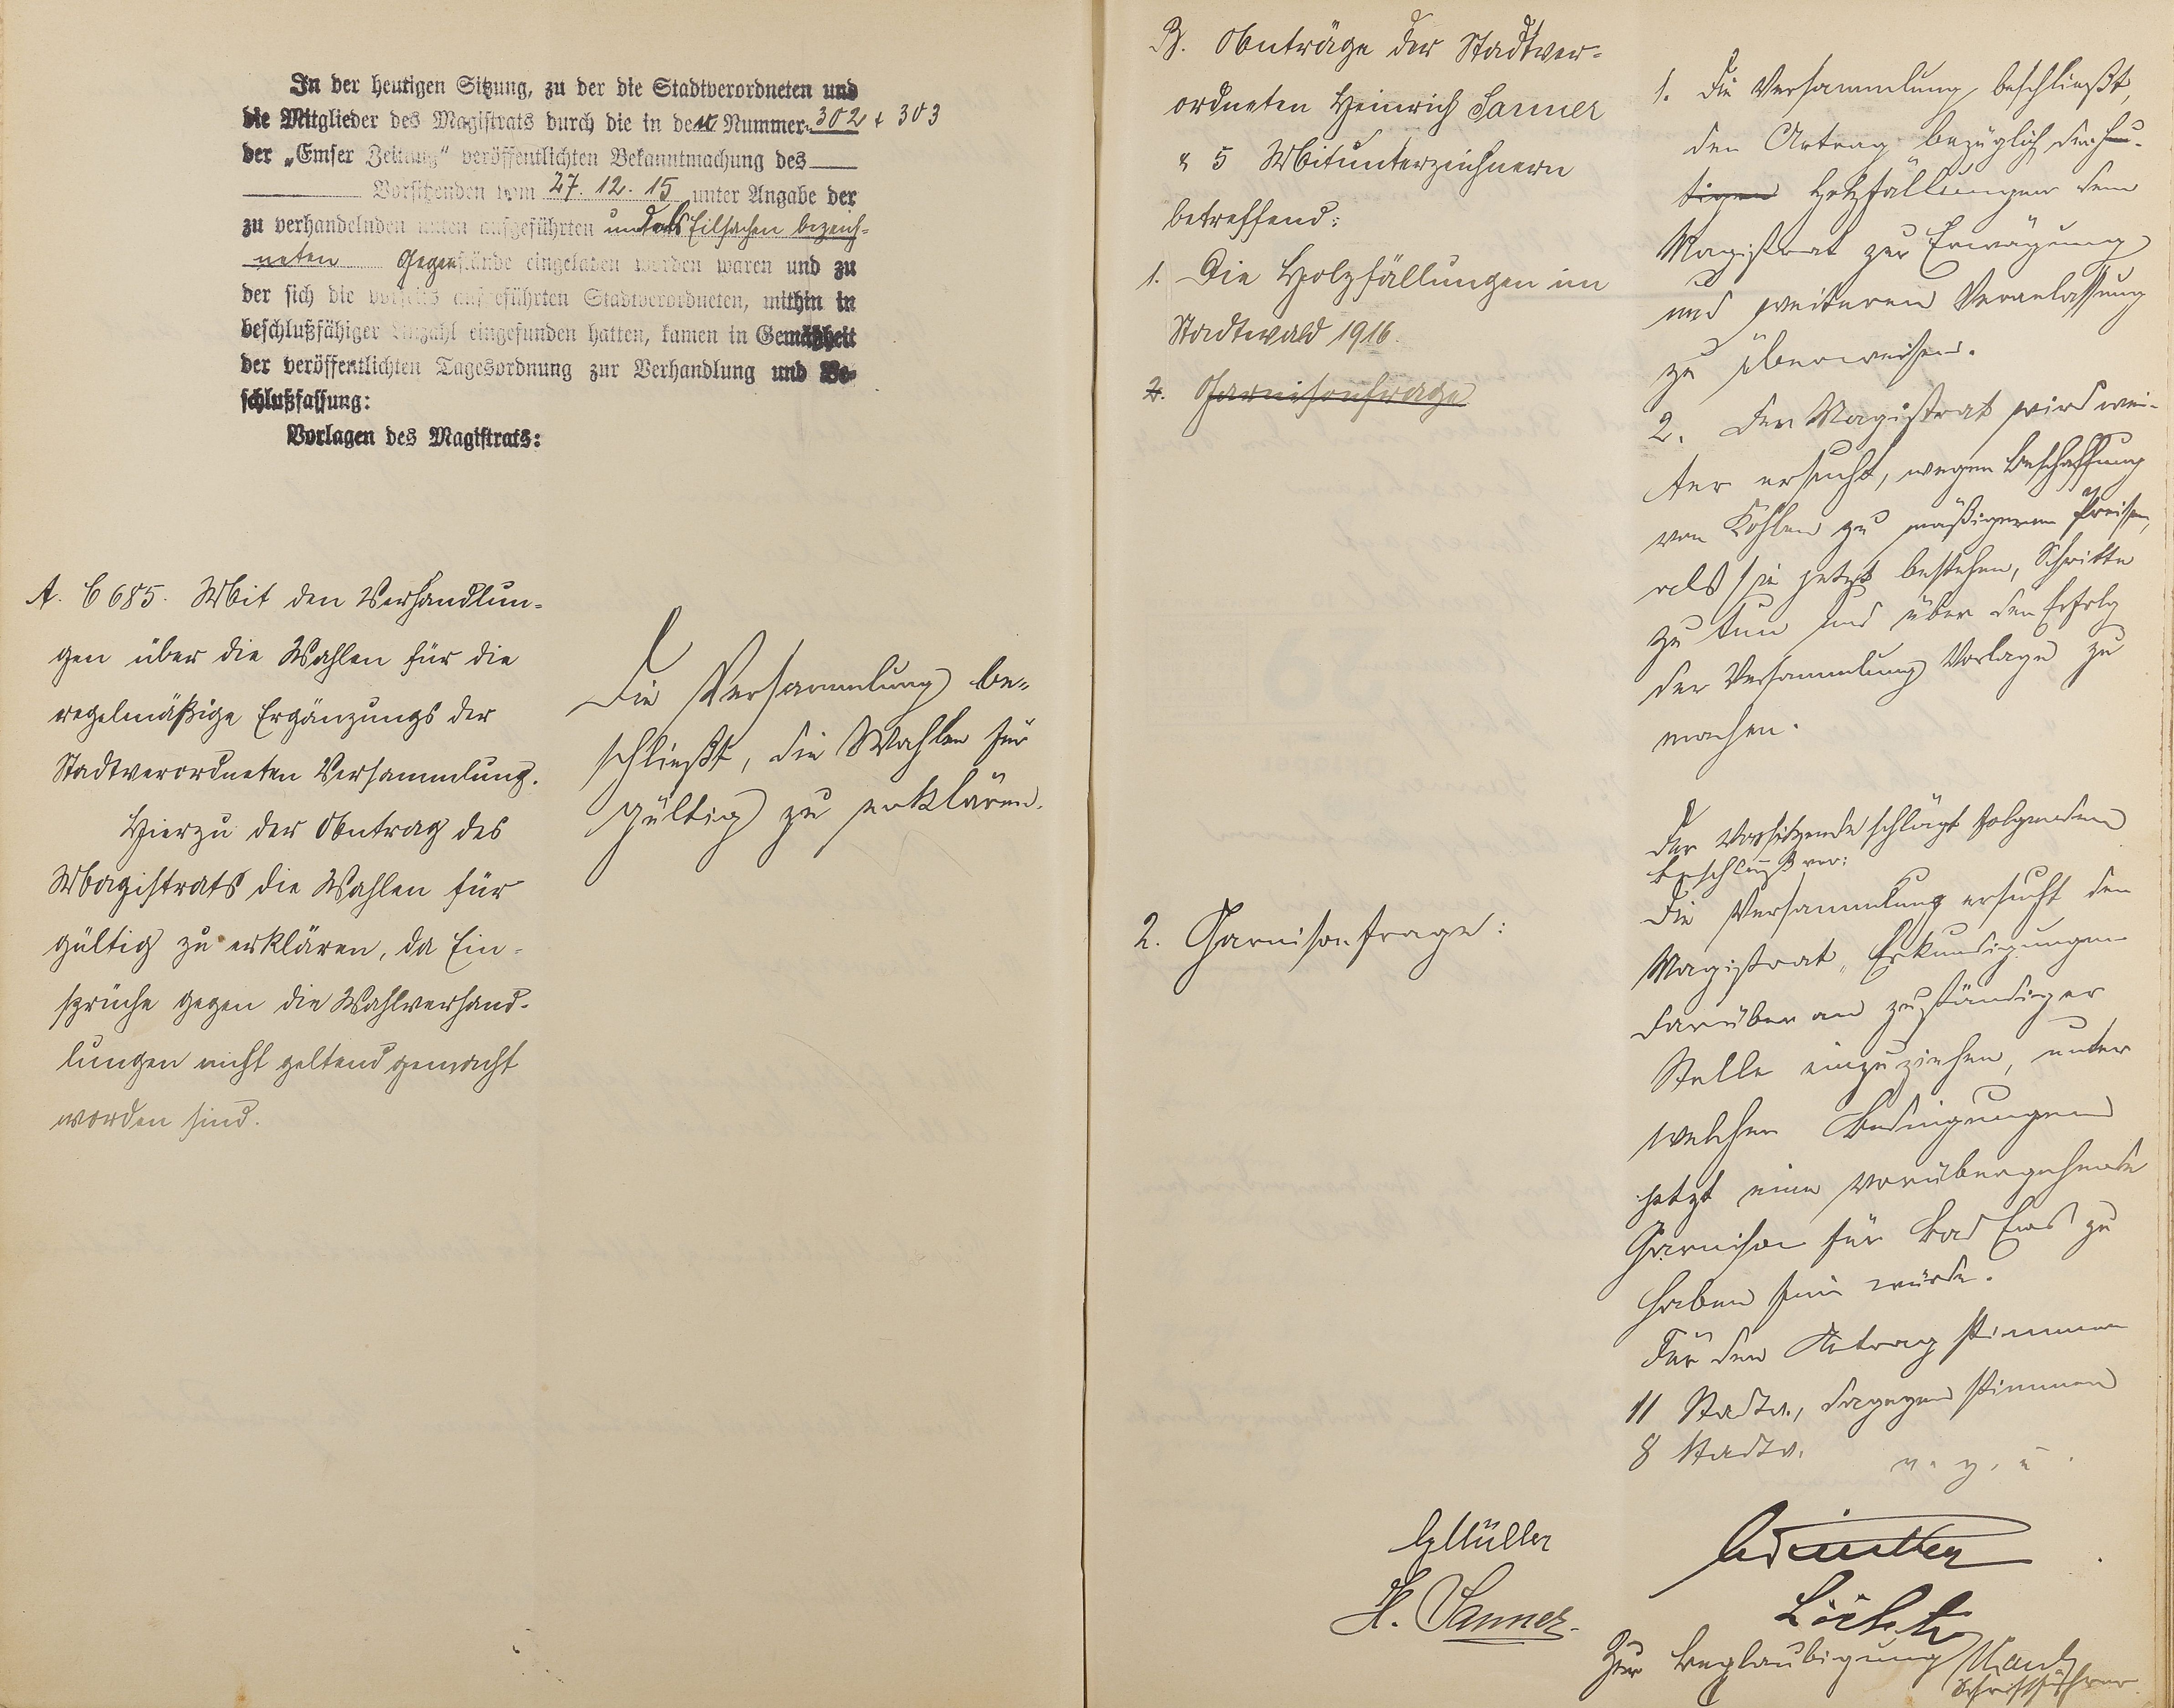 In der heutigen Sitzung, zu der die Stadtverordneten und
die Mitglieder des Magistrats durch die in den Nummer 302 + 303
der „Emser Zeitung“ veröffentlichten Bekanntmachung des
Vorsitzenden vom 27. 12. 15 unter Angabe der
zu verhandelnden unten aufgeführten und als Eilsachen bezeich-
neten Gegenstände eingeladen worden waren und zu
der sich die vorseits aufgeführten Stadtverordneten, mithin in
beschlußfähiger Anzahl eingefunden hatten, kamen in Gemäßheit
der veröffentlichten Tagesordnung zur Verhandlung und Be-
schlußfassung:
Vorlagen des Magistrats:
A. C 685. Mit den Verhandlun-
gen über die Wahlen für die
regelmäßige Ergänzungs der
Stadtverordneten Versammlung.
Hierzu der Antrag des
Magistrats die Wahlen für
gültig zu erklären, da Ein-
sprüche gegen die Wahlverhand-
lungen nicht geltend gemacht
worden sind.
Die Versammlung be-
schließt, die Wahlen für
gültig zu erklären.
B. Anträge der Stadtver-
ordneten Heinrich Sanner
& 5 Mitunterzeichnern
betreffend:
1. Die Holzfällungen im
Stadtwald 1916.
2. Garnisonfrage
2. Garnisonfrage:
1. Die Versammlung beschließt,
den Antrag bezüglich der heu-
tigen Holzfällungen dem
Magistrat zur Erwägung
und weiteren Veranlassung
zu überweisen.
2. Der Magistrat wird wei-
ter ersucht, wegen Beschaffung
von Kohlen zu mäßigeren Preisen,
als sie jetzt bestehen, Schritte
zu tun und über den Erfolg
der Versammlung Vorlage zu
machen.
Der Vorsitzende schlägt folgenden
Beschluß vor:
Die Versammlung ersucht den
Magistrat, Erkundigungen
darüber an zuständiger
Stelle einzuziehen, unter
welchen Bedingungen
jetzt eine vorübergehende
Garnison für Bad Ems zu
haben sein würde.
Für den Antrag stimmen
11 Stadtv., dagegen stimmen
8 Stadtv.
v. g. u.
Müller
H. Sanner
Zur Beglaubigung
Schriftführer